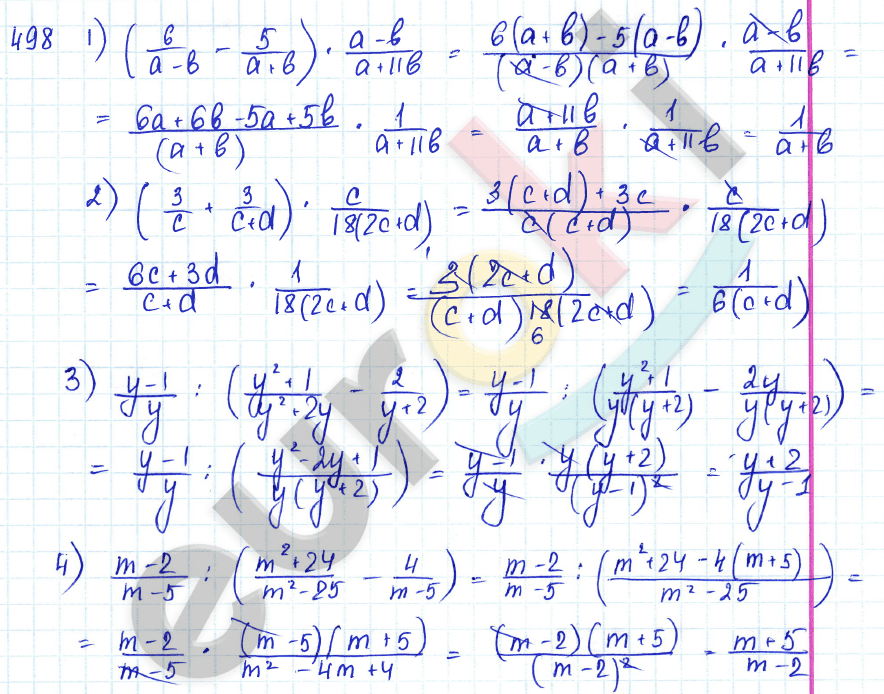 498 1) (6/(a-b) - 5/(a+b)) · (a-b)/(a+11b) = (6(a+b)-5(a-b))/((a-b)(a+b)) · (a-b)/(a+11b) =
= (6a+6b-5a+5b)/(a+b) · 1/(a+11b) = (a+11b)/(a+b) · 1/(a+11b) = 1/(a+b)
2) (3/c + 3/(c+d)) · c/(18(2c+d)) = (3(c+d)+3c)/(c(c+d)) · c/(18(2c+d))
= (6c+3d)/(c+d) · 1/(18(2c+d)) = (3(2c+d))/((c+d)18(2c+d)) = 1/(6(c+d))
1
6
3) (y-1)/y : ((y²+1)/(y²+2y) - 2/(y+2)) = (y-1)/y : ((y²+1)/(y(y+2)) - 2y/(y(y+2))) =
= (y-1)/y : ((y²-2y+1)/(y(y+2))) = (y-1)/y · (y(y+2))/((y-1)²) = (y+2)/(y-1)
4) (m-2)/(m-5) : ((m²+24)/(m²-25) - 4/(m-5)) = (m-2)/(m-5) : ((m²+24-4(m+5))/(m²-25)) =
= (m-2)/(m-5) · ((m-5)(m+5))/(m²-4m+4) = ((m-2)(m+5))/((m-2)²) = (m+5)/(m-2)
euroki